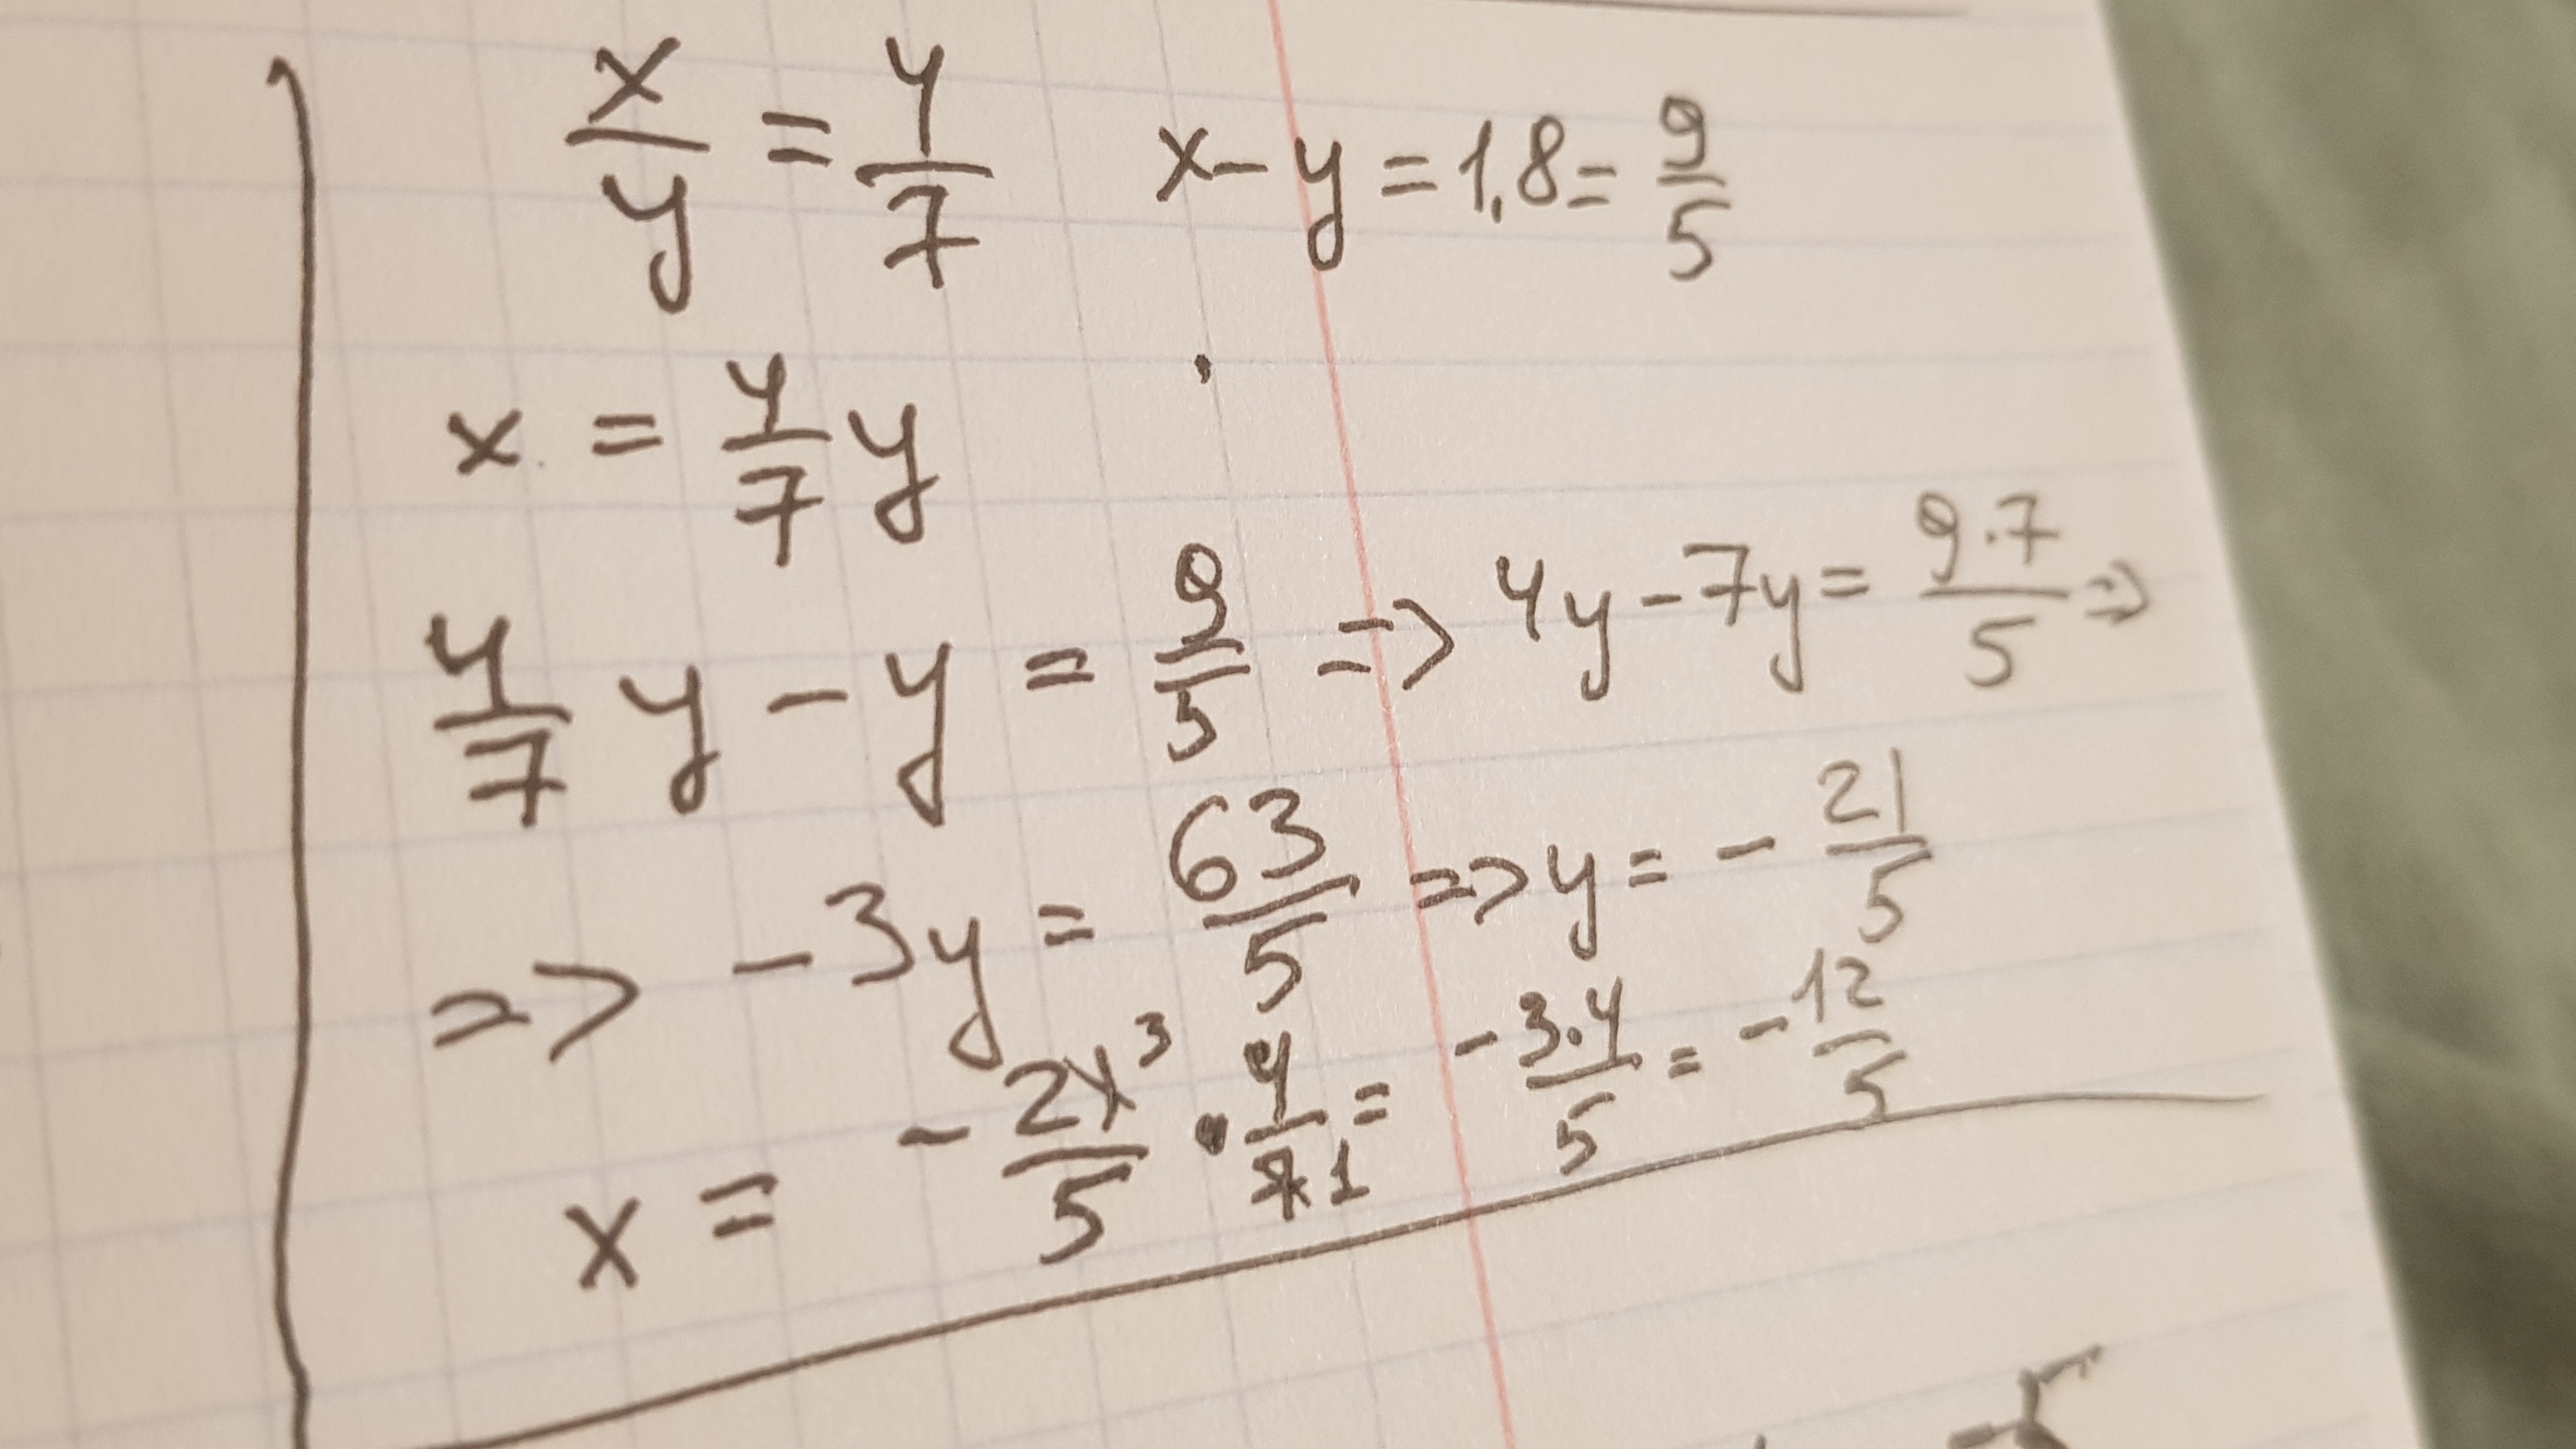 x/y = 4/7 x - y = 1,8 = 9/5
x = 4/7 y
4/7 y - y = 9/5 => 4y - 7y = 9·7/5 =>
=> -3y = 63/5 => y = - 21/5
x = - 21³/5 · 4/7 1 = - 3·4/5 = - 12/5